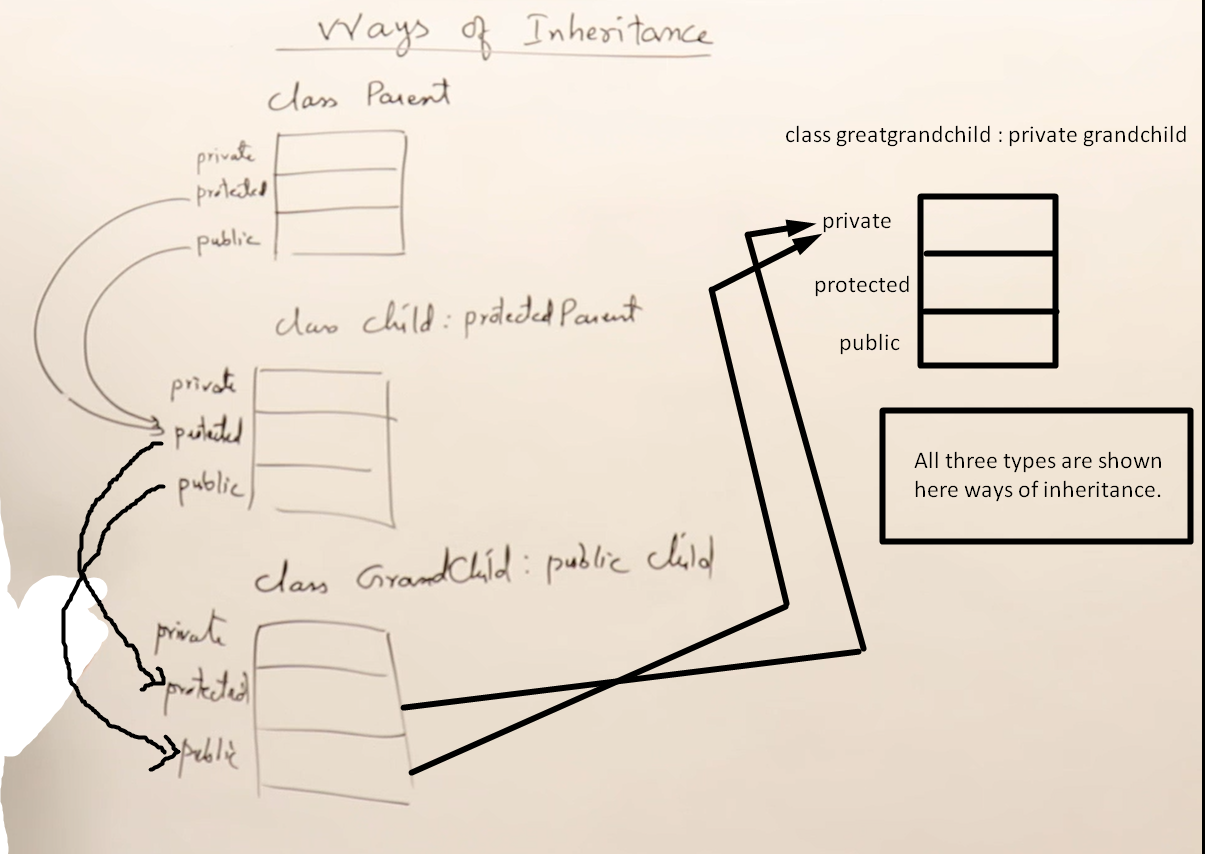 Ways of Inheritance
class Parent
private
protected
public
class Child : protected Parent
private
protected
public
class GrandChild : public Child
private
protected
public
class greatgrandchild : private grandchild
private
protected
public
All three types are shown
here ways of inheritance.